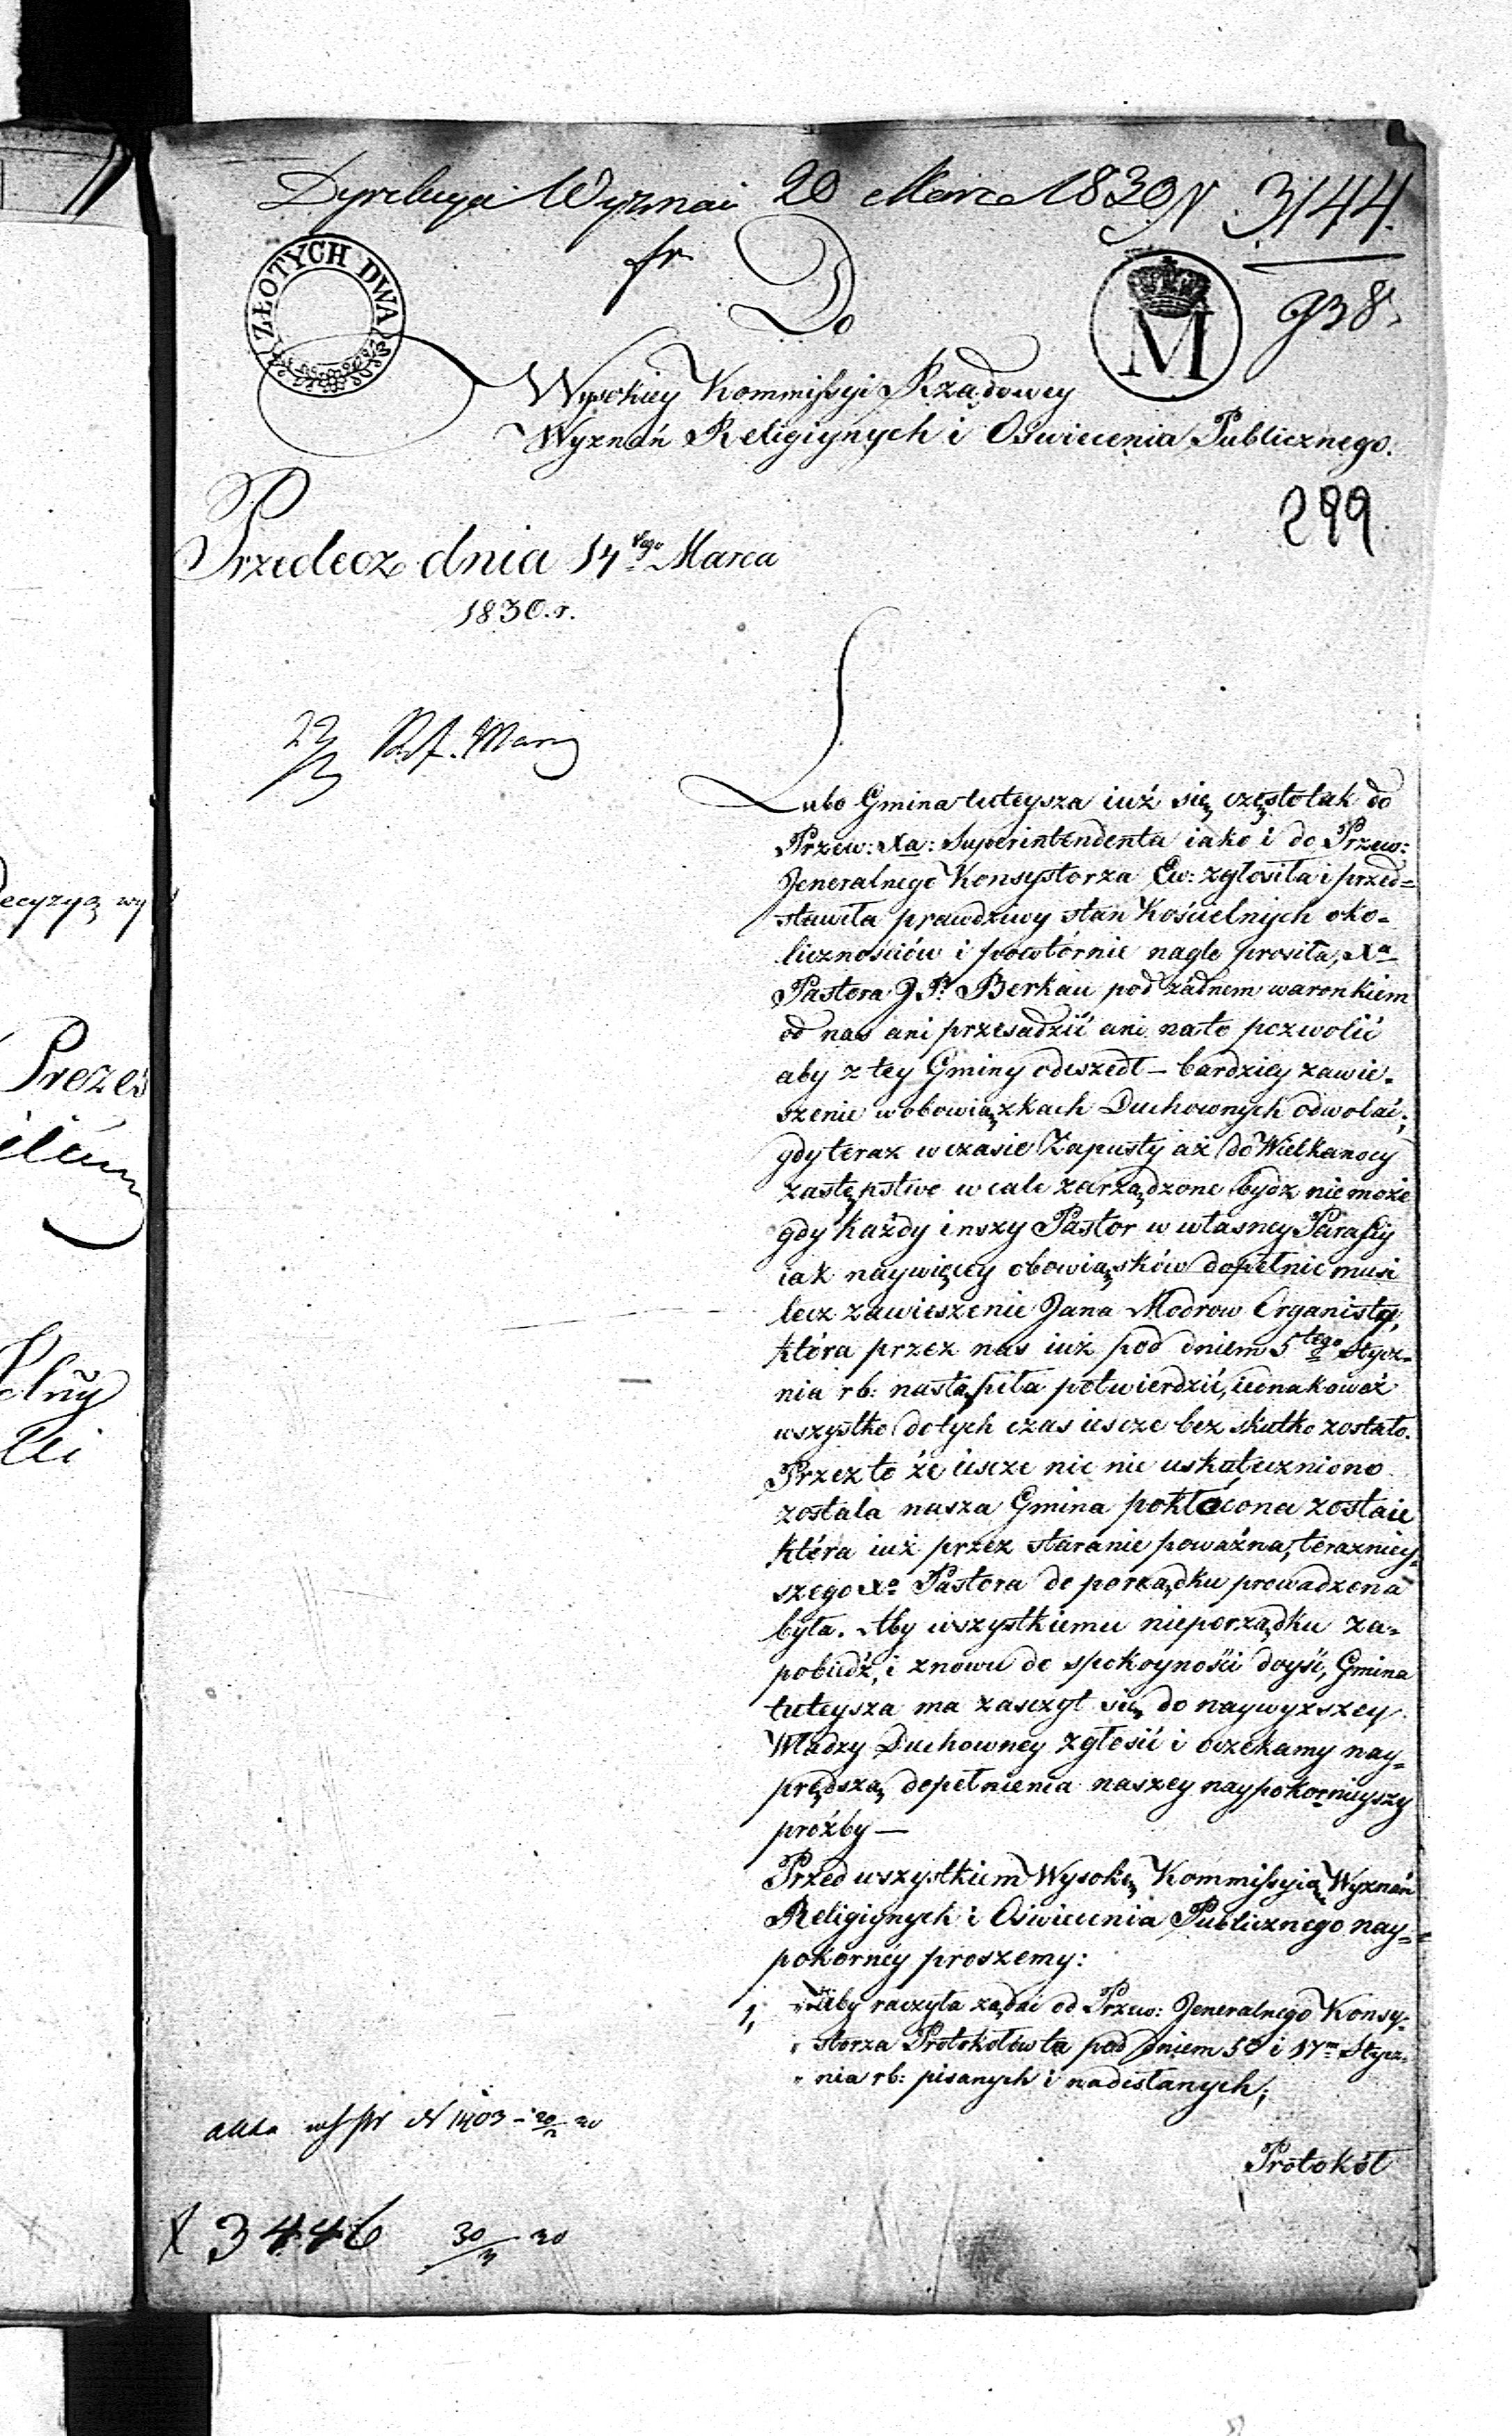 Dyrekcya Wyznań 20 Marca 1830 N 3144.
fr.
938
ZŁOTYCH DWA
M
Do
Wysokiey Kommissyi Rządowey
Wyznań Religiynych i Oswiecenia Publicznego.
299
Przedecz dnia 14tego Marca
1830. r.
22/3
Lubo Gmina tuteysza iuż się często tak do
Przew: Xa: Superintendenta iako i do Przew:
Jeneralnego Konsystorza Ew: zgłosiła i przed=
stawiła prawdziwy stan Kościelnych oko-
licznościów i powtórnie nagle prosiła, Xa
Pastora J. P. Berkau pod żadnem waronkiem
od nas ani przesadzić ani nato pozwolić
aby z tey Gminy odszedł – bardziey zawie-
szenie w obowiązkach Duchownych odwołać;
gdy teraz w czasie Zapusty aż do Wielkanocy
zastępstwo w cale zarządzone bydz nie może
gdy każdy inszy Pastor w własney Parafiy
iak naywięcey obowiąsków dopełnic musi
lecz zawieszenie Jana Modrow Organisty,
która przez nas iuż pod dniem 5tego Stycz-
nia rb: nastąpiła potwierdzić, iednakowoż
wszystko dotych czas iescze bez skutko zostało.
Przez to że iescze nic nie uskoteczniono
zostala nasza Gmina pokłócona zostaie
która iuż przez staranie poważna, terazniey=
szego Xa Pastora do porządku prowadzona
była. Aby wszystkiemu nieporządku za-
pobiedź, i znowu do spokoyności doyść, Gmina
tuteysza ma zasczyt się do naywyzszey
Władzy Duchowney zgłosić i oczekamy nay=
prędszą dopełnienia naszey naypokornieyszy
proźby —
Przed wszystkiem Wysoką Kommissyią Wyznań
Religiynych i Oświecenia Publicznego nay=
pokorniéy proszemy:
1, Aby raczyła ządać od Przew: Jeneralnego Konsy-
storza Protokołów ta pod dniem 5o i 17m Stycz-
nia rb: pisanych i nadesłanych;
Protokół
N 1403 –
3446 30/3 30
Prezes